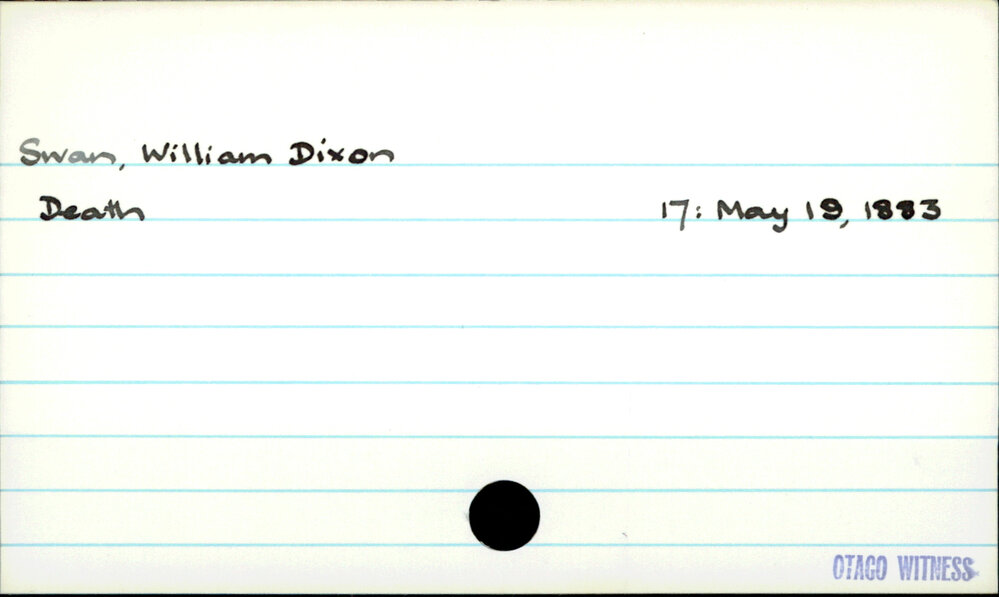 Swan, William Dixon
Death 17: May 19, 1883
OTAGO WITNESS